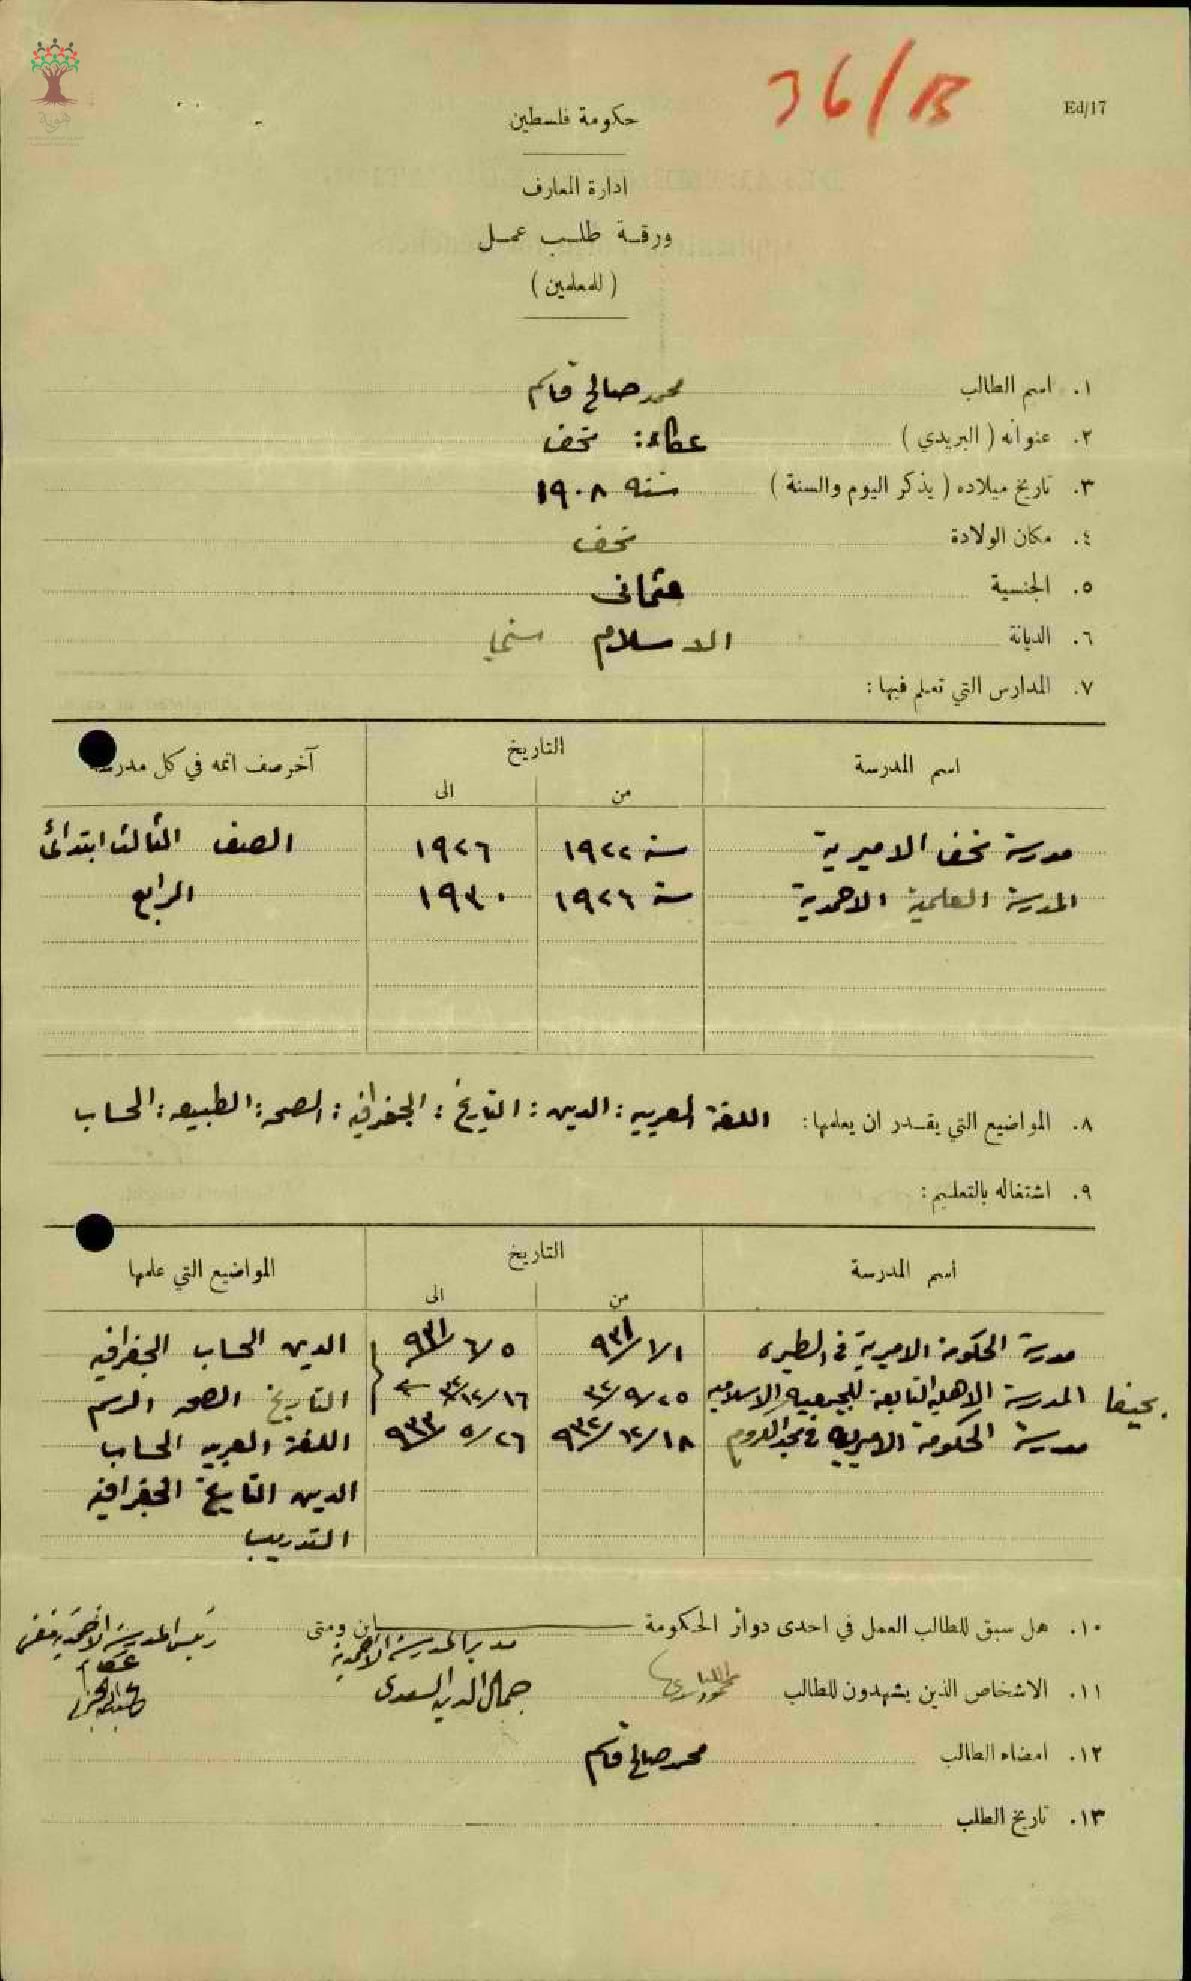 هوية
36/B
Ed/17
حكومة فلسطين
ادارة المعارف
ورقة طلب عمل
( للمعلمين )
١. اسم الطالب محمد صالح قاسم
٢. عنوانه ( البريدي ) عكاء: نحف
٣. تاريخ ميلاده ( يذكر اليوم والسنة ) سنه ١٩٠٨
٤. مكان الولادة نحف
٥. الجنسية عثماني
٦. الديانة الاسلام
٧. المدارس التي تعلم فيها :
اسم المدرسة التاريخ آخر صف اتمه في كل مدرسة
من الى
مدرسة نحف الاميرية سنة ١٩٢٢ ١٩٢٦ الصف الثالث ابتدائي
المدرسة العلمية الاحمدية سنة ١٩٢٦ ١٩٣٠ الرابع
٨. المواضيع التي يقدر ان يعلمها : اللغة العربيه : الدين : التاريخ : الجغرافيه : الصحه : الطبيعه : الحساب
٩. اشتغاله بالتعليم :
اسم المدرسة التاريخ المواضيع التي علمها
من الى
مدرسة الحكومة الاميرية في الطيره ١/١/٩٣١ ٥/٦/٩٣١ الدين الحساب الجغرافيه
بحيفا المدرسة الاهلية التابعة للجمعيه الاسلاميه ٢٥/٩/٣٢ ١٦/١٢/٣٢ التاريخ الصحه الرسم
مدرسة الحكومة الاميرية في مجد الكروم ١٨/١٢/٩٣٢ ٢٦/٥/٩٣٣ اللغة العربيه الحساب
الدين التاريخ الجغرافيه
التدريب
١٠. هل سبق للطالب العمل في احدى دوائر الحكومة اين ومتى
مدير المدرسة الاحمدية
رئيس المدرسة الاحمدية
عكا
١١. الاشخاص الذين يشهدون للطالب جمال الدين السعدي
١٢. امضاء الطالب محمد صالح قاسم
١٣. تاريخ الطلب